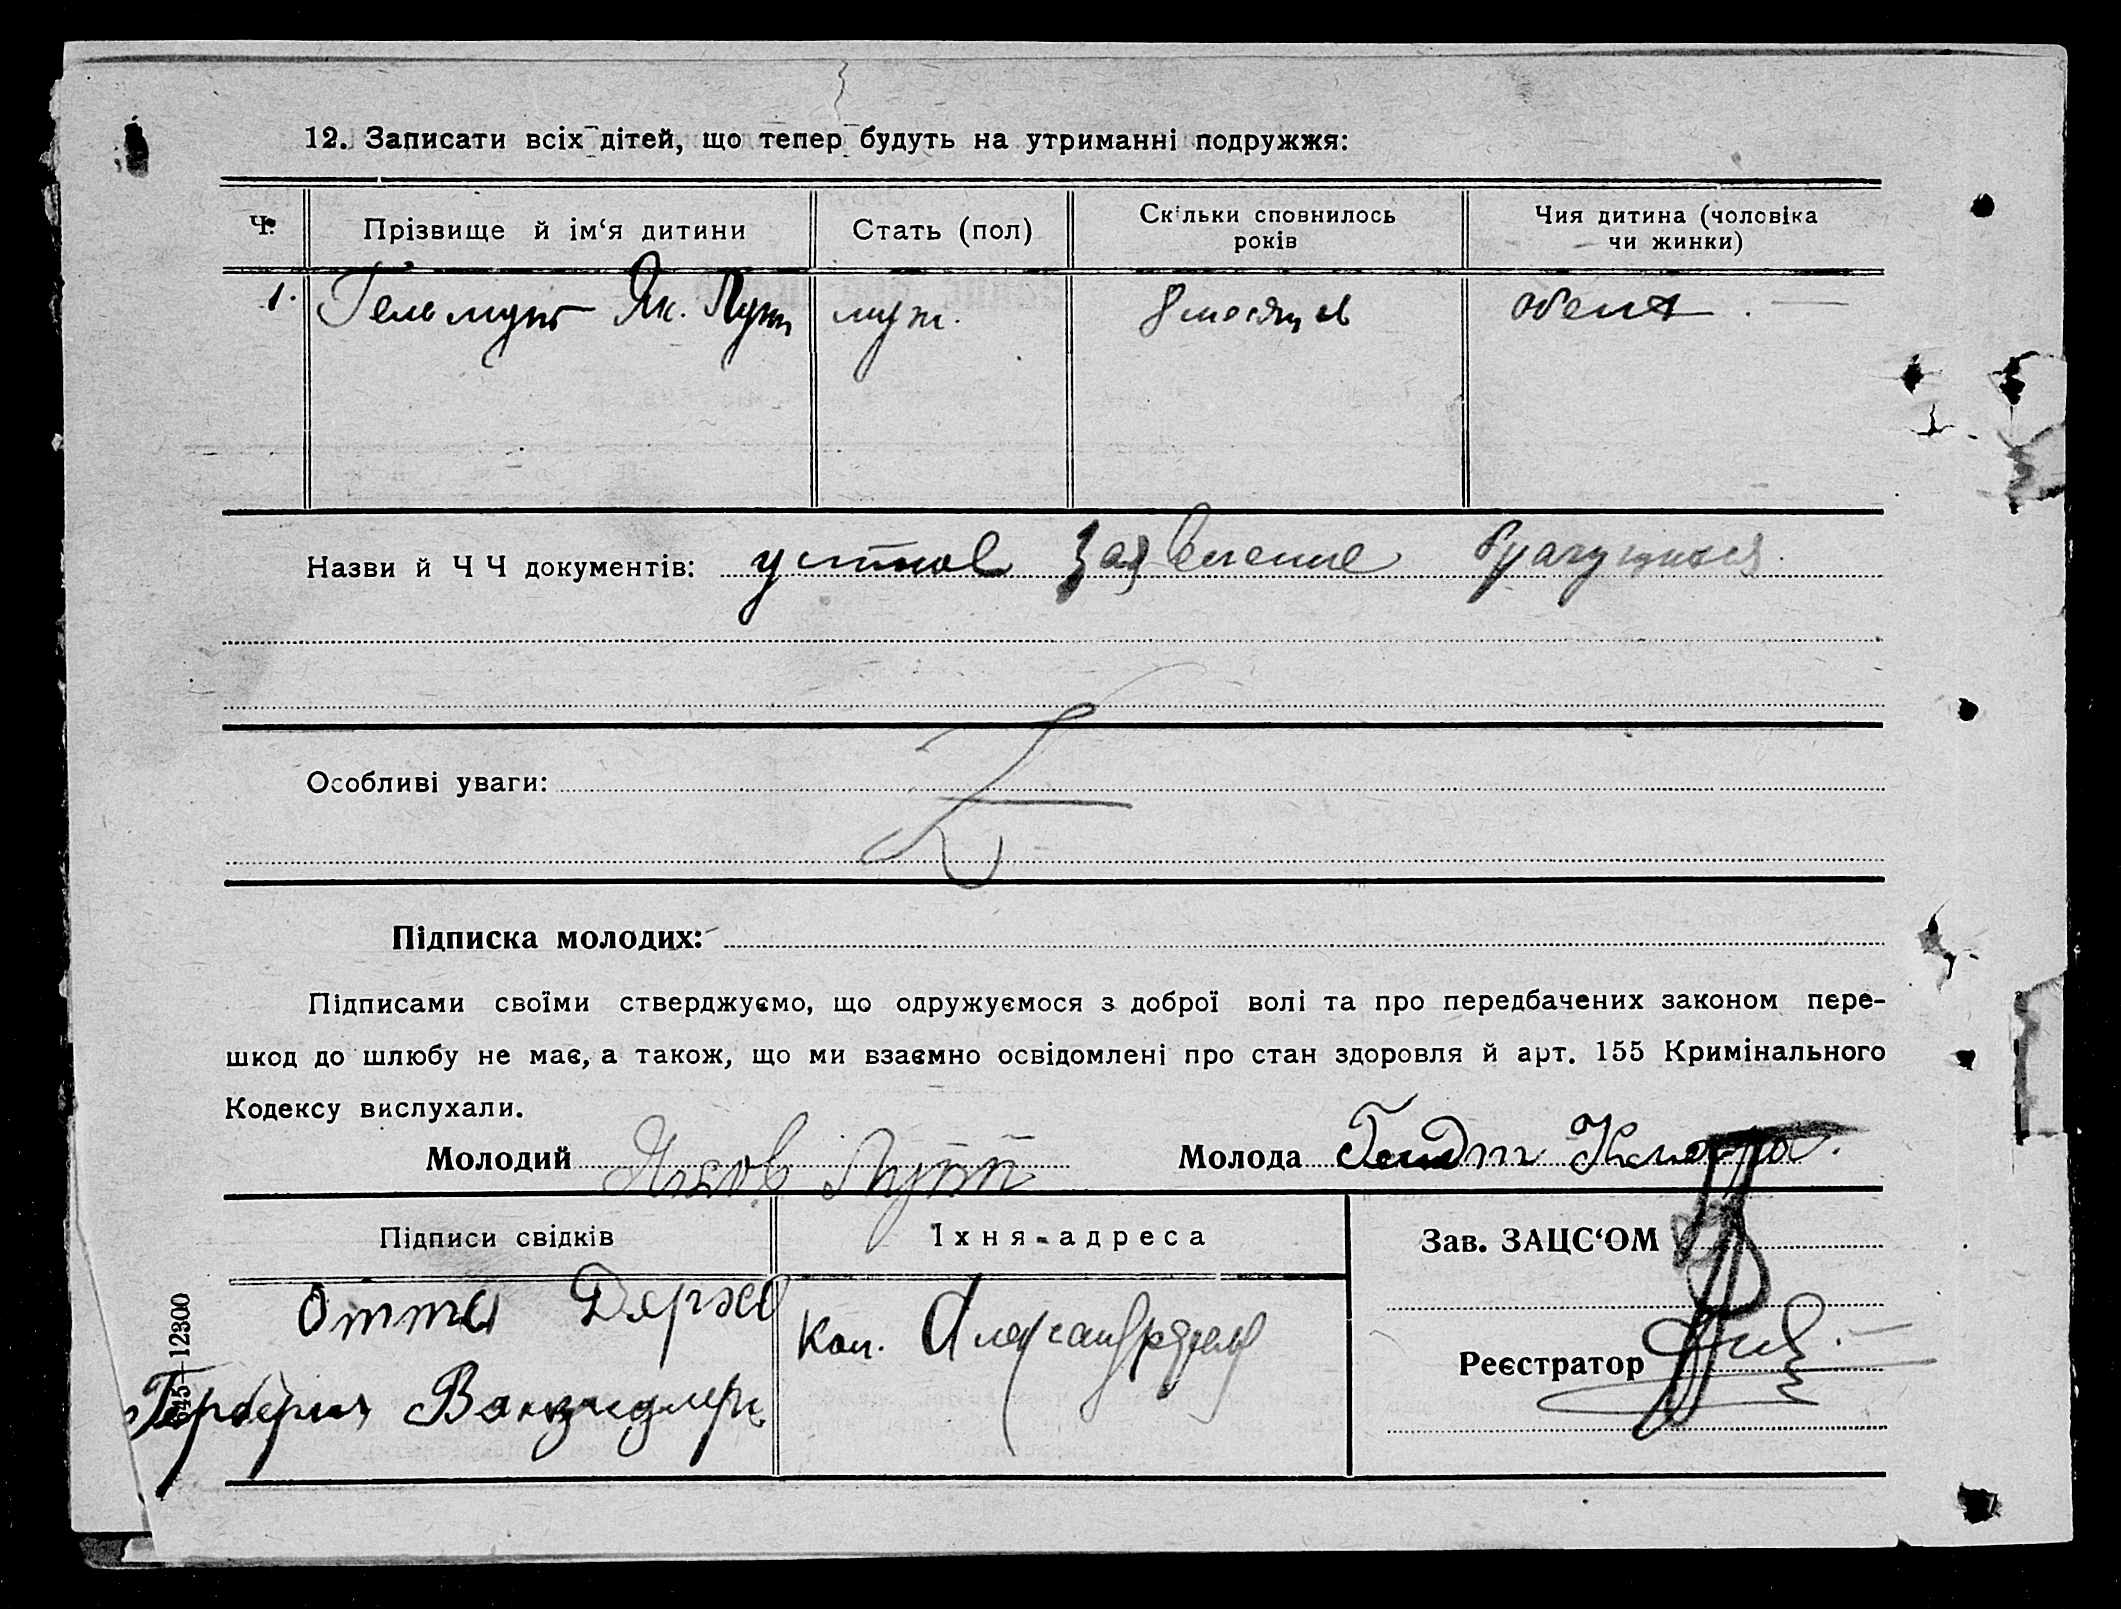 12. Записати всіх дітей, що тепер будуть на утриманні подружжя:
Ч. Прізвище й ім‘я дитини Стать (пол) Скільки сповнилось років Чия дитина (чоловіка чи жинки)
1. Гельмут Як. Путт муж. 8 месяцев
Назви й Ч Ч документів: устное заявление брачущихся
Особливі уваги:
Підписка молодих:
Підписами своїми стверджуємо, що одружуємося з доброї волі та про передбачених законом пере-
шкод до шлюбу не має, а також, що ми взаємно освідомлені про стан здоровля й арт. 155 Кримінального
Кодексу вислухали.
Молодий Яков Путт Молода Гендт
Підписи свідків Їхня адреса Зав. ЗАЦС‘ОМ
Отто
Кол. Александрфельд
Реєстратор
12300